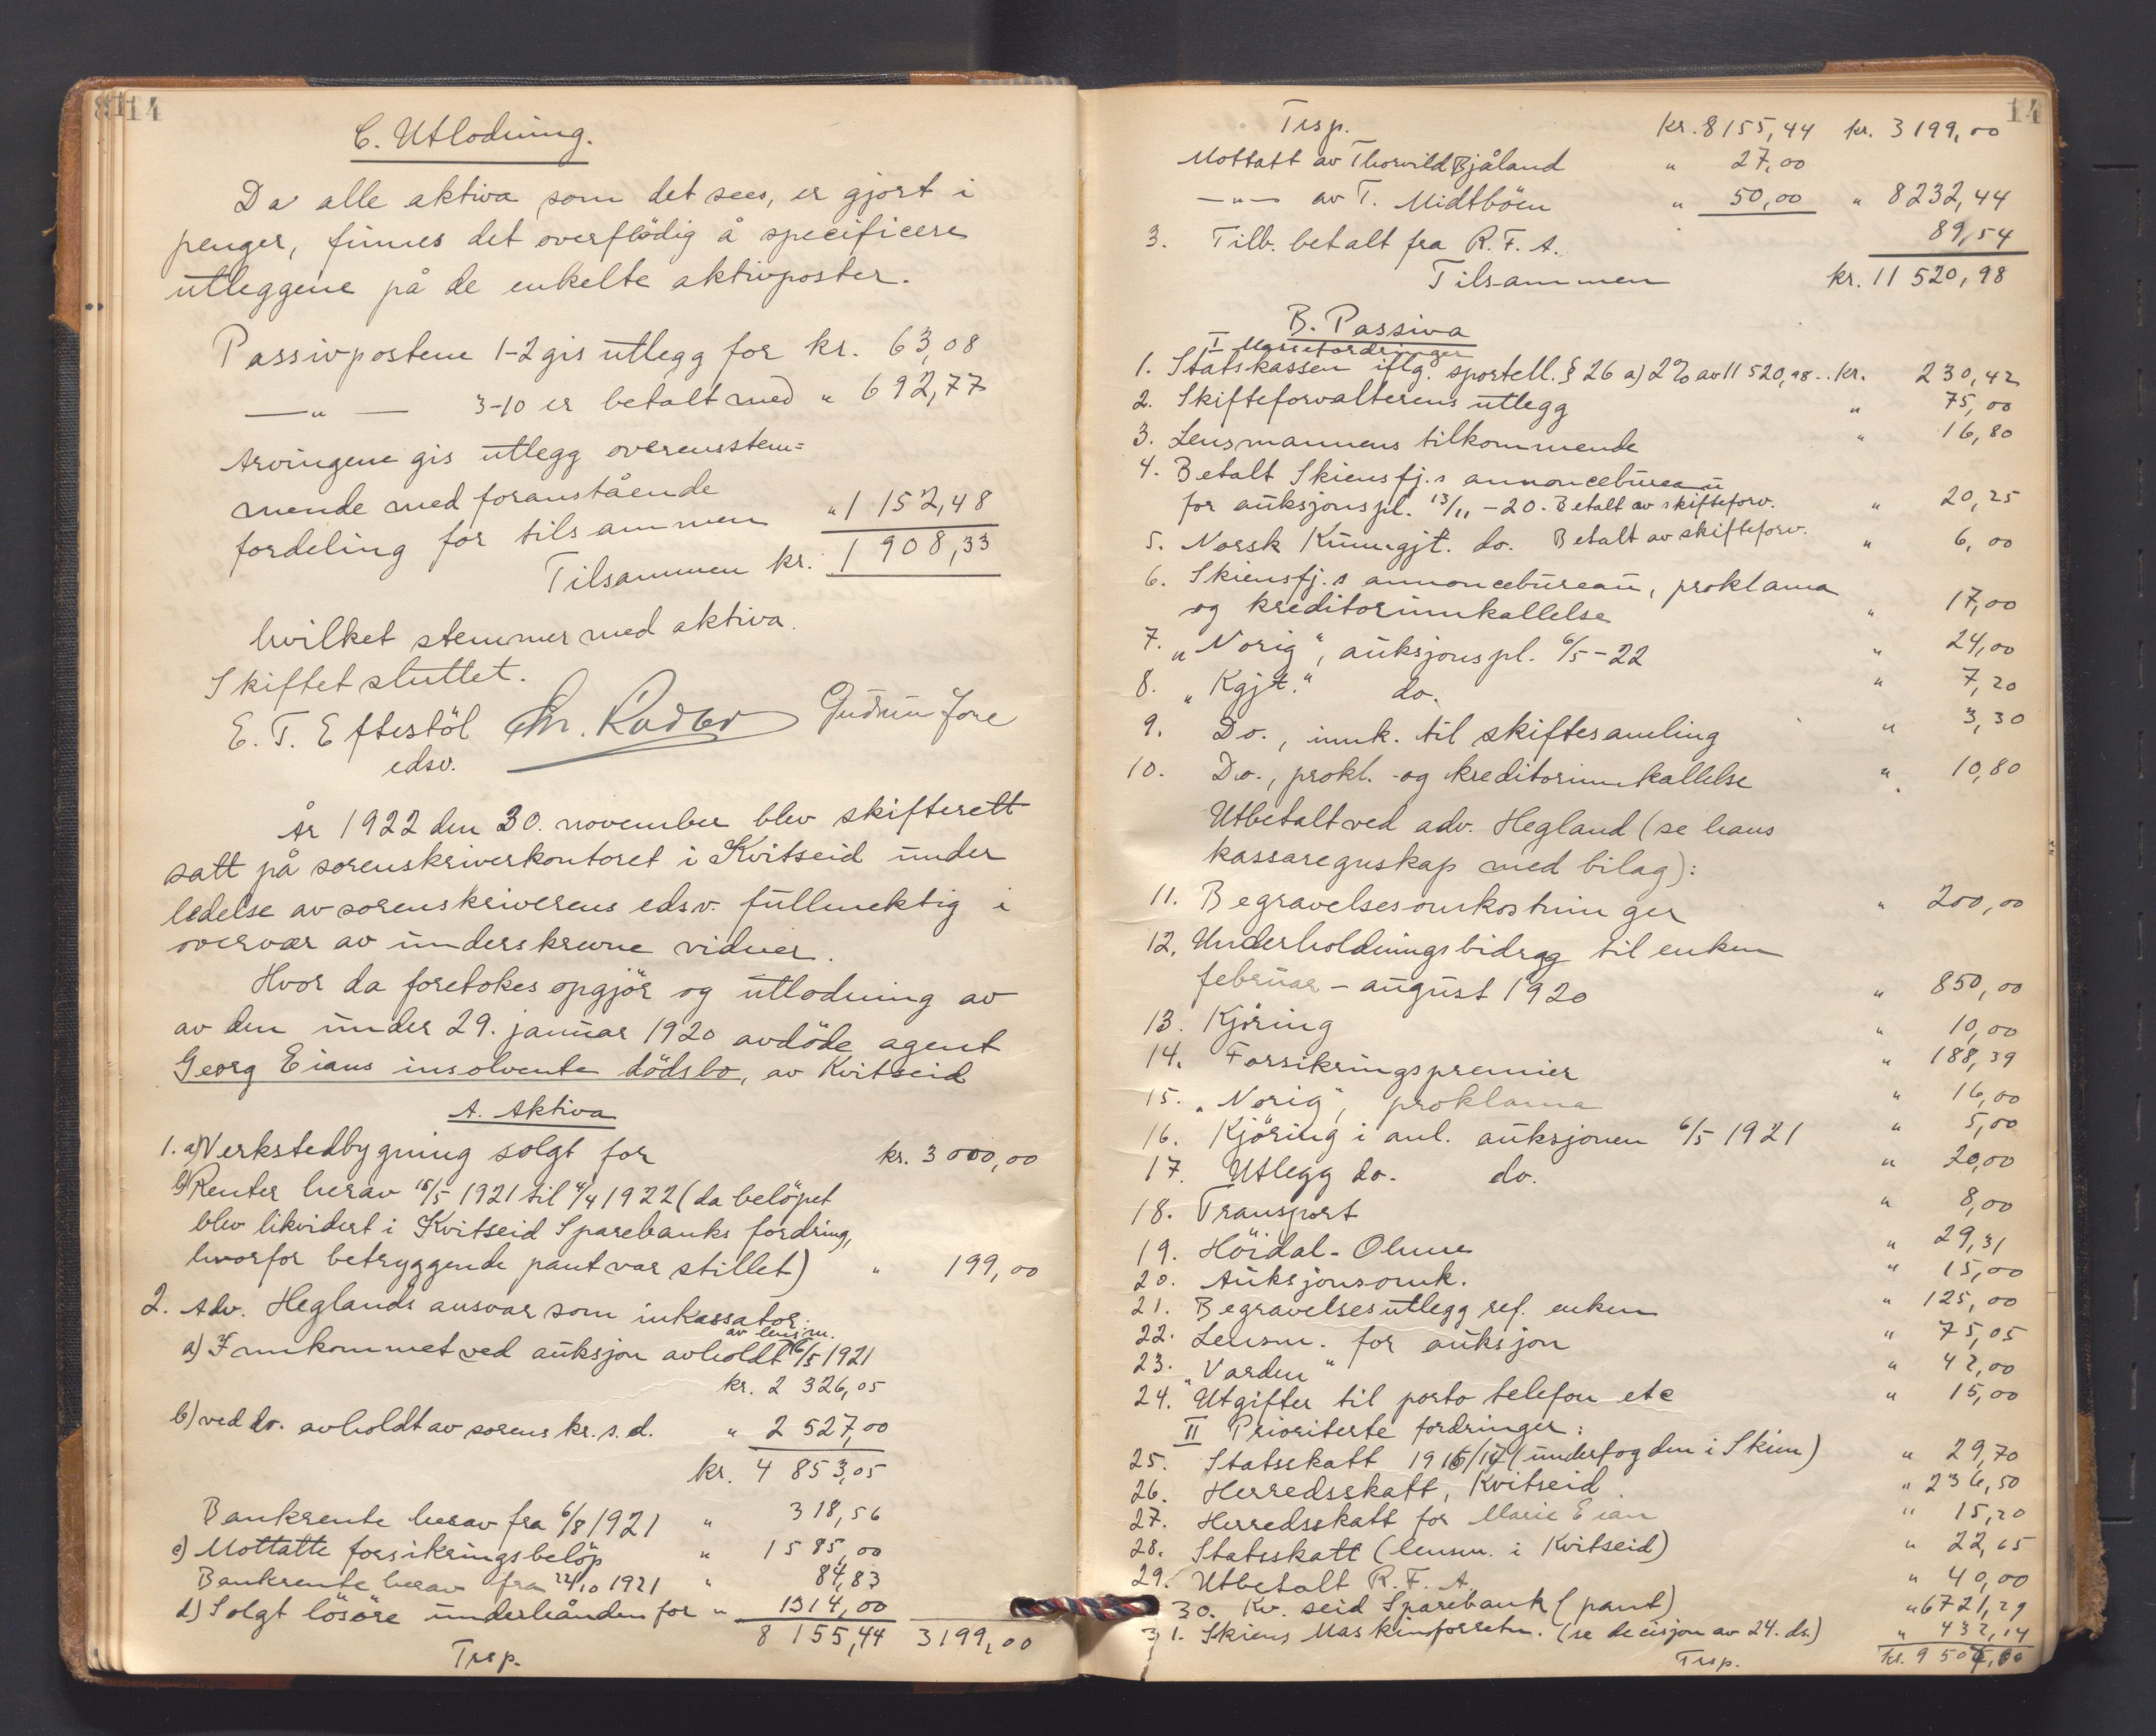 14
C. Utlodning.
Da alle aktiva som det sees, er gjort i
penger, finnes det overflödig å specificere
utleggene på de enkelte aktivposter.
Passivpostene 1-2 gis utlegg for kr. 63,08
—"— 3-10 er betalt med " 692,77
Arvingene gis utlegg overensstem=
mende med foranstående
fordeling for tilsammen " 1 152,48
Tilsammen kr. 1 908,33
hvilket stemmer med aktiva.
Skiftet sluttet.
E. T. Eftestöl Chr. Gudrun
edsv.
År 1922 den 30. november blev skifterett
satt på sorenskriverkontoret i Kvitseid under
ledelse av sorenskriverens edsv. fullmektig i
overvær av underskrevne vidner.
Hvor da foretokes opgjör og utlodning av
av den under 29. januar 1920 avdöde agent
Georg Eians insolvente dödsbo, av Kvitseid
A. Aktiva
1. a) Verkstedbygning solgt for kr. 3 000,00
b) Renter herav 15/5 1921 til 4/4 1922 (da belöpet
blev likvidert i Kvitseid Sparebanks fordring,
hvorfor betryggende pant var stillet) " 199,00
2. Adv. Heglands ansvar som inkassator:
av lensm.
a) Innkommet ved auksjon avholdt 6/5 1921
kr. 2 326,05
b) ved do. avholdt av sorenskr. s. d. " 2 527,00
kr. 4 853,05
Bankrente herav fra 6/8 1921 " 318,56
c) Mottatte forsikringsbelöp " 1 585,00
Bankrente herav fra 22/10 1921 " 84,83
d) Solgt lösöre underhånden for " 1314,00
8 155,44 3199,00
Trsp.
14
Trsp. kr. 8155,44 kr. 3199,00
Mottatt av Thorvild Bjåland " 27,00
—"— av T. Midtböen " 50,00 " 8232,44
3. Tilb. betalt fra R. F. A. 89,54
Tilsammen kr. 11 520,98
B. Passiva
I Massefordringer
1. Statskassen iflg. sportell. § 26 a) 2% av 11 520,98.. kr. 230,42
2. Skifteforvalterens utlegg " 75,00
3. Lensmannens tilkommende " 16,80
4. Betalt Skiensfj.s annoncebureau
for auksjonspl. 13/11 -20. Betalt av skifteforv. " 20,25
5. Norsk Kunngjt. do. Betalt av skifteforv. " 6,00
6. Skiensfj.s annoncebureau, proklama
og kreditorinnkallelse " 17,00
7. "Norig", auksjonspl. 6/5-22 " 24,00
8. "Kgjt." do. " 7,20
9. Do., innk. til skiftesamling " 3,30
10. Do., prokl. og kreditorinnkallelse " 10,80
Utbetalt ved adv. Hegland (se hans
kassaregnskap med bilag):
11. Begravelsesomkostninger " 200,00
12. Underholdningsbidrag til enken
februar – august 1920 " 850,00
13. Kjöring " 10,00
14. Forsikringspremier " 188,39
15. "Norig", proklama " 16,00
16. Kjöring i anl. auksjonen 6/5 1921 " 5,00
17. Utlegg do. do. " 20,00
18. Transport " 8,00
19. Höidal-Olsen " 29,31
20. Auksjonsomk. " 15,00
21. Begravelsesutlegg ref. enken " 125,00
22. Lensm. for auksjon " 75,05
23. "Varden" " 42,00
24. Utgifter til porto telefon etc " 15,00
II Prioriterte fordringer:
25. Statsskatt 1916/17 (underfogden i Skien) " 29,70
26. Herredsskatt, Kvitseid " 236,50
27. Herredsskatt for Marie Eian " 15,20
28. Statsskatt (lensm. i Kvitseid) " 22,65
29. Utbetalt R. F. A. " 40,00
30. Kv. seid Sparebank (pant) " 6721,29
31. Skiens Maskinforretn. (se decisjon av 24. ds.) " 432,14
Trsp. kr. 9 507,00